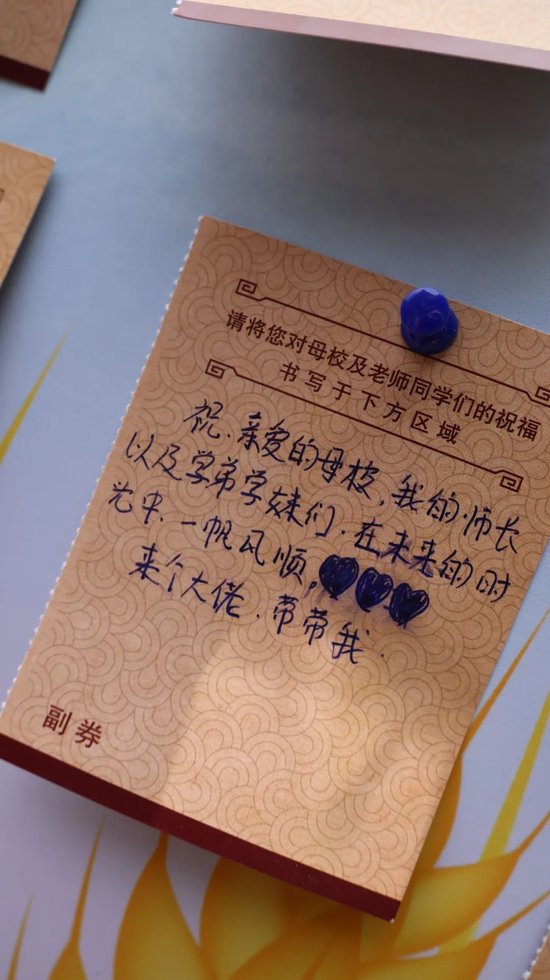 请将您对母校及老师同学们的祝福
书写于下方区域
祝.亲爱的母校,我的师长
以及学弟学妹们.在未来的时
光中.一帆风顺,
来个大佬.带带我.
副券